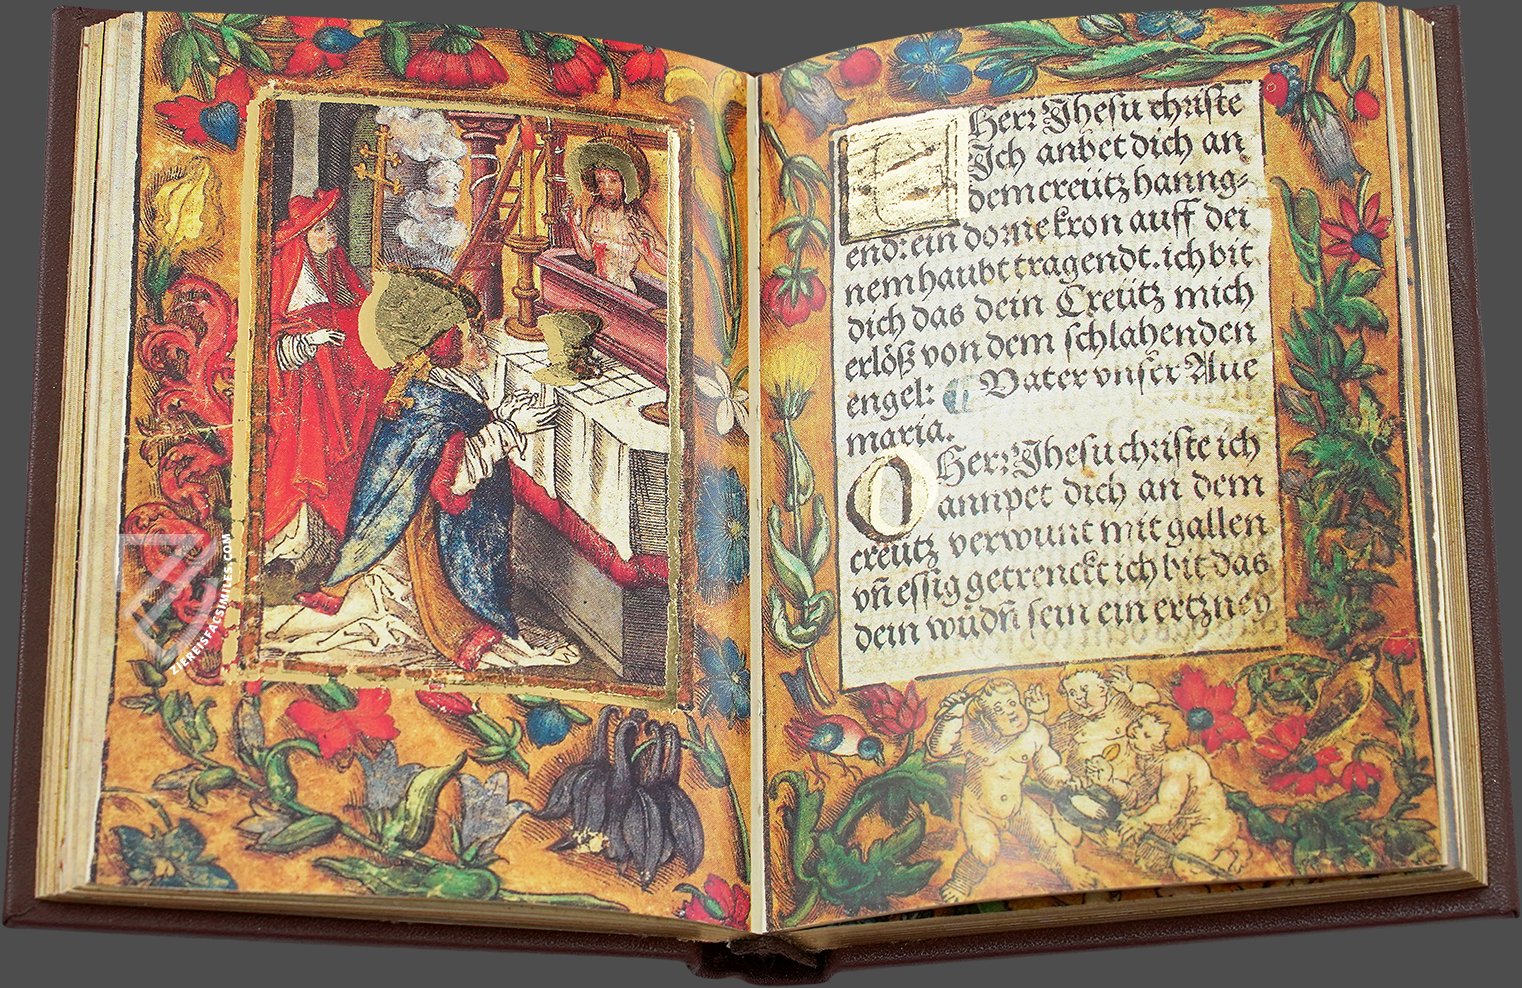 ZIEREISFACSIMILES.COM
Herr Jhesu christe
Jch anbet dich an
dem creütz hanng⸗
end: ein dorne kron auff dei
nem haubt tragendt. ich bit
dich das dein Creütz mich
erlöß von dem schlahenden
engel: ¶ Vater vnser Aue
maria.
O Herr Jhesu christe ich
annpet dich an dem
creütz verwunt mit gallen
vn̄ essig getrenckt ich bit das
dein wüdn̄ sein ein ertzney